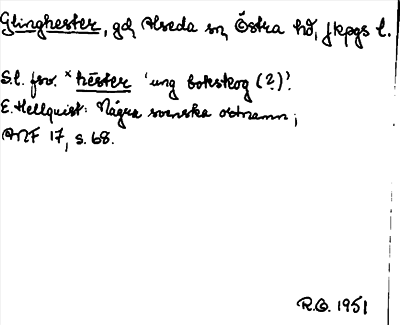 Glinghester, gd, Alseda sn, Östra hd, Jkpgs l.
S.l. fsv. *hēster 'ung bokskog (?)'.
E. Hellquist: Några svenska ortnamn;
ANF 17, s. 68.
R.O. 1951